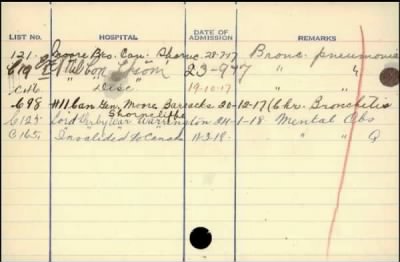 LIST NO. HOSPITAL DATE OF ADMISSION REMARKS
121 Moore Bks. Can. Shorn. 28-7-17 Bronc. pneumonia
C19 Epsom 23-9-17 " "
C46 " Disc 19-10-17 " "
C98 #11 Can Gen. Moore Barracks 20-12-17 Bronchitis
Shorncliffe
C125 Lord Derby War Warrington 24-1-18 Mental Obs
C165 Invalided to Canada 11-3-18 " "